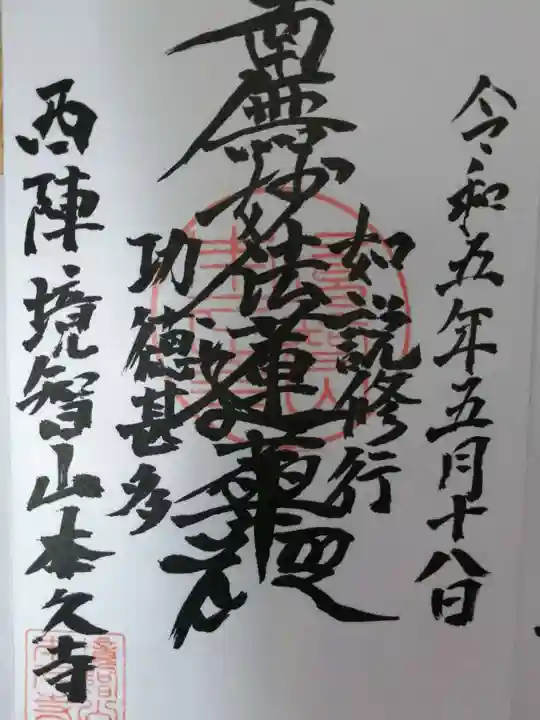 令和五年五月十八日
如説修行
南無妙法蓮華経
功徳甚多
西陣境智山本久寺